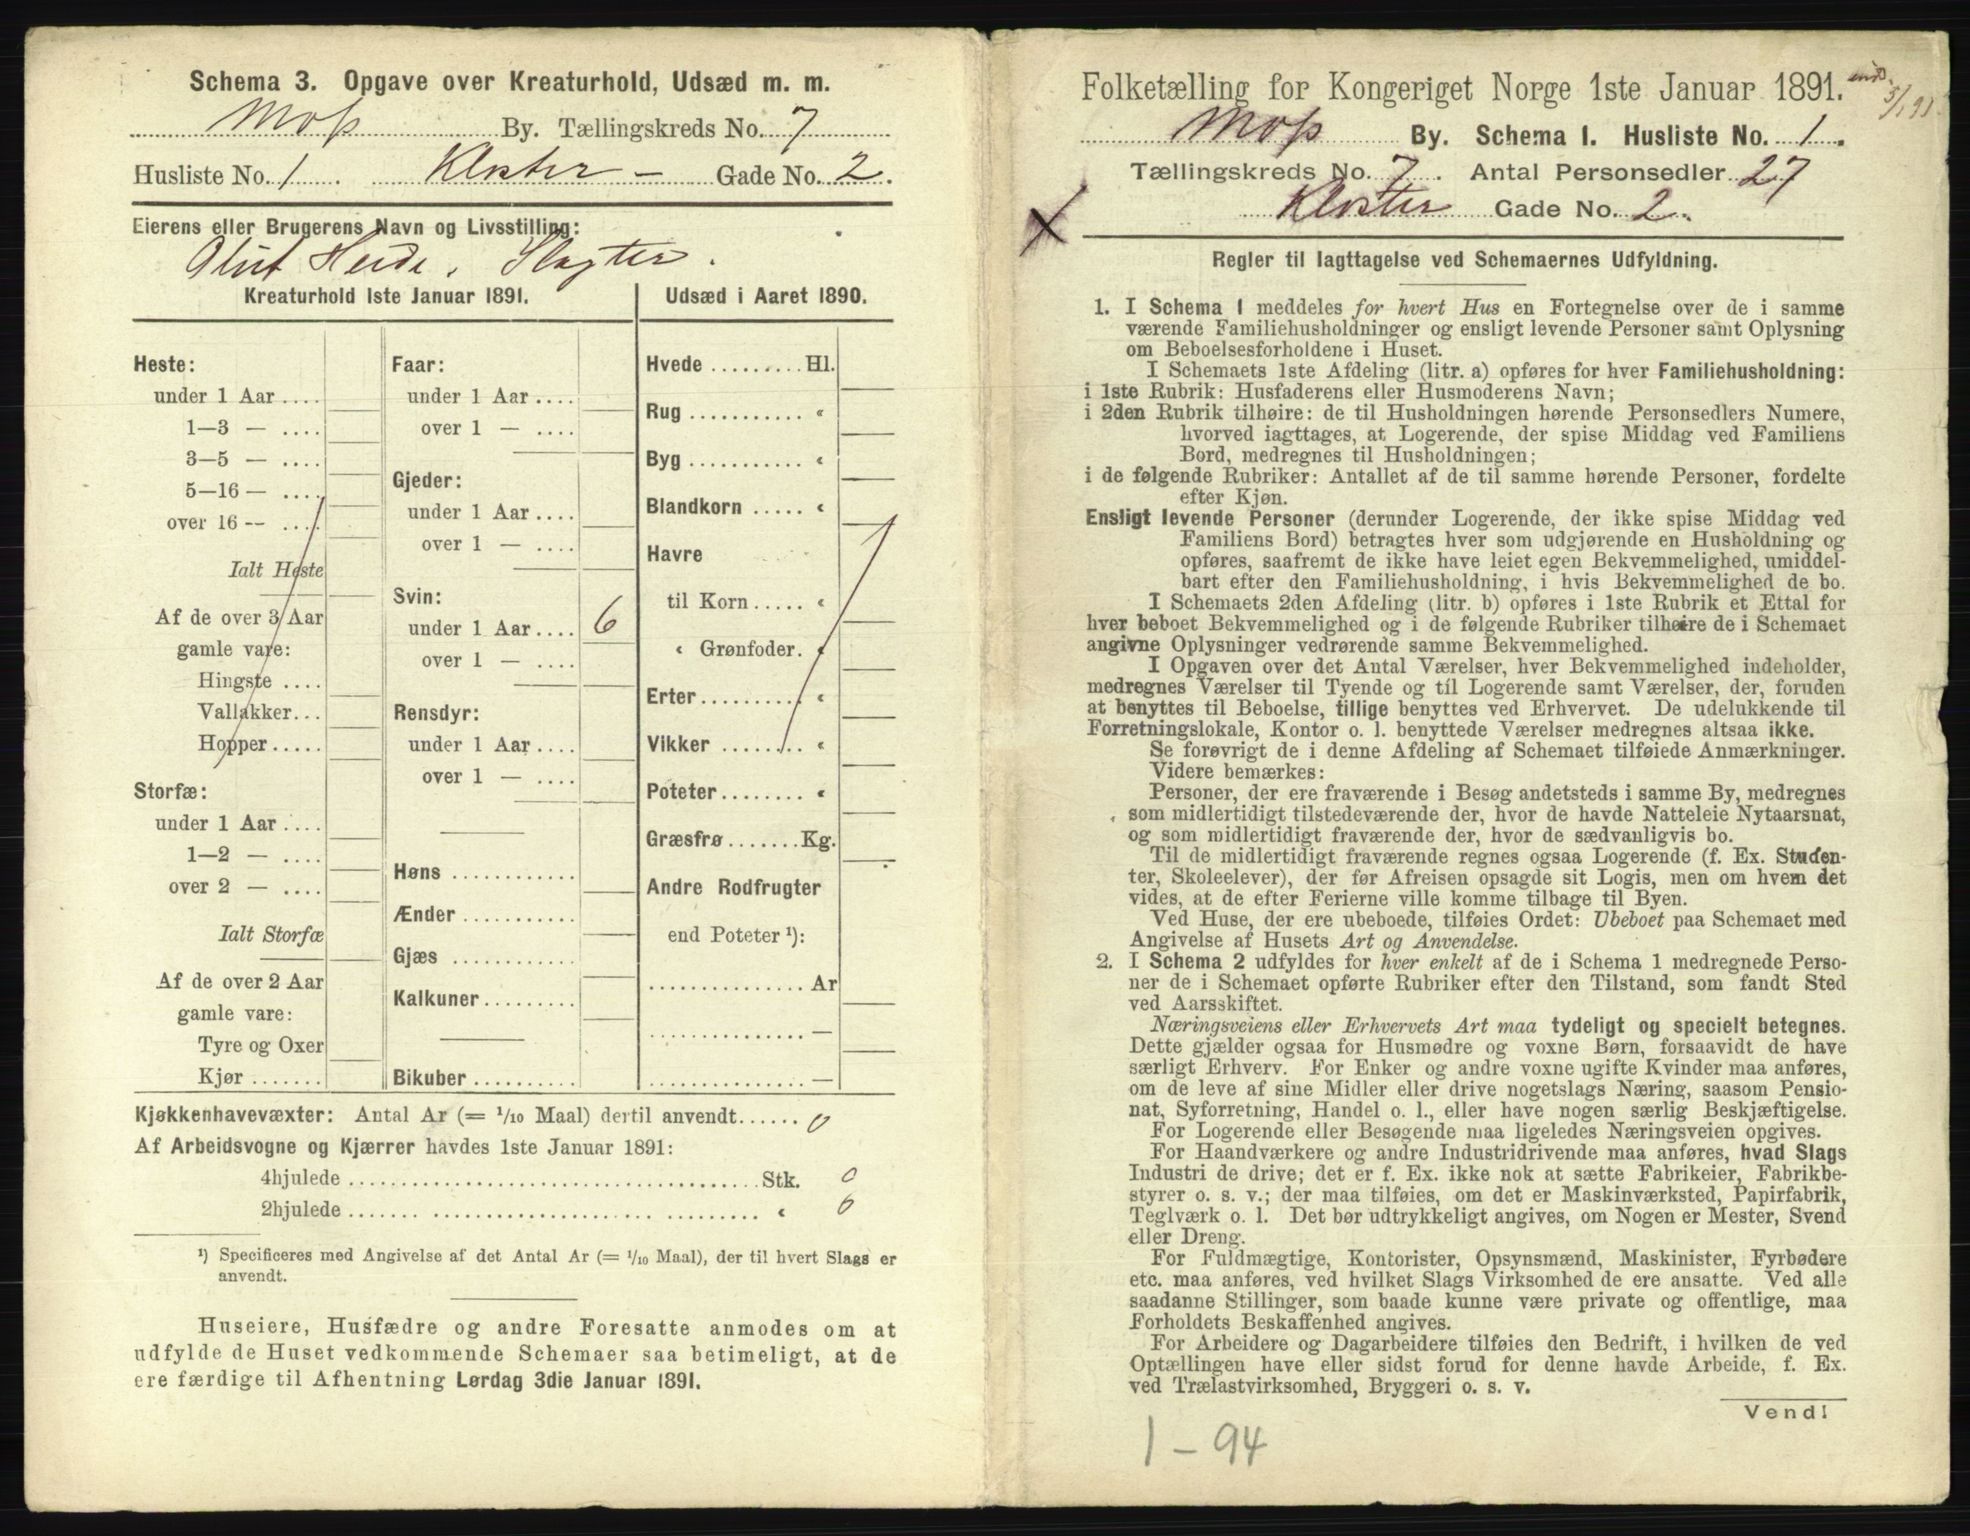 Schema 3. Opgave over Kreaturhold, Udsæd m. m.
Moss By. Tællingskreds No. 7
Husliste No. 1 Kloster - Gade No. 2.
Eierens eller Brugerens Navn og Livsstilling:
Oluf Heide, Slagter.
Kreaturhold 1ste Januar 1891.
Heste:
under 1 Aar ....
1—3 — ....
3—5 — ....
5—16 — ....
over 16 — ....
Ialt Heste
Af de over 3 Aar
gamle vare:
Hingste ....
Vallakker...
Hopper.....
Storfæ:
under 1 Aar ....
1—2 — ....
over 2 — ....
Ialt Storfæ
Af de over 2 Aar
gamle vare:
Tyre og Oxer
Kjør .......
Faar:
under 1 Aar ....
over 1 — ....
Gjeder:
under 1 Aar ....
over 1 — ....
Svin:
under 1 Aar.... 6
over 1 — ....
Rensdyr:
under 1 Aar ....
over 1 — ....
Høns ............
Ænder ...........
Gjæs ............
Kalkuner.........
Bikuber ..........
Udsæd i Aaret 1890.
Hvede .......... Hl.
Rug ........... "
Byg ........... "
Blandkorn ..... "
Havre
til Korn..... "
" Grønfoder. "
Erter.......... "
Vikker ........ "
Poteter........ "
Græsfrø .......Kg.
Andre Rodfrugter
end Poteter ¹):
............... Ar
............... —
............... —
Kjøkkenhavevæxter: Antal Ar (= 1/10 Maal) dertil anvendt...... 0
Af Arbeidsvogne og Kjærrer havdes 1ste Januar 1891:
4hjulede ........................................Stk. 0
2hjulede ....... ................... ......... " 0
¹) Specificeres med Angivelse af det Antal Ar (= 1/10 Maal), der til hvert Slags er
anvendt.
Huseiere, Husfædre og andre Foresatte anmodes om at
udfylde de Huset vedkommende Schemaer saa betimeligt, at de
ere færdige til Afhentning Lørdag 3die Januar 1891.
Folketælling for Kongeriget Norge 1ste Januar 1891.
5/1 91.
Moss By. Schema I. Husliste No. 1.
Tællingskreds No. 7. Antal Personsedler 27
Kloster Gade No. 2.
X
Regler til Iagttagelse ved Schemaernes Udfyldning.
1. I Schema 1 meddeles for hvert Hus en Fortegnelse over de i samme
værende Familiehusholdninger og ensligt levende Personer samt Oplysning
om Beboelsesforholdene i Huset.
I Schemaets 1ste Afdeling (litr. a) opføres for hver Familiehusholdning:
i 1ste Rubrik: Husfaderens eller Husmoderens Navn;
i 2den Rubrik tilhøire: de til Husholdningen hørende Personsedlers Numere,
hvorved iagttages, at Logerende, der spise Middag ved Familiens
Bord, medregnes til Husholdningen;
i de følgende Rubriker: Antallet af de til samme hørende Personer, fordelte
efter Kjøn.
Ensligt levende Personer (derunder Logerende, der ikke spise Middag ved
Familiens Bord) betragtes hver som udgjørende en Husholdning og
opføres, saafremt de ikke have leiet egen Bekvemmelighed, umiddel-
bart efter den Familiehusholdning, i hvis Bekvemmelighed de bo.
I Schemaets 2den Afdeling (litr. b) opføres i 1ste Rubrik et Ettal for
hver beboet Bekvemmelighed og i de følgende Rubriker tilhøire de i Schemaet
angivne Oplysninger vedrørende samme Bekvemmelighed.
I Opgaven over det Antal Værelser, hver Bekvemmelighed indeholder,
medregnes Værelser til Tyende og til Logerende samt Værelser, der, foruden
at benyttes til Beboelse, tillige benyttes ved Erhvervet. De udelukkende til
Forretningslokale, Kontor o. l. benyttede Værelser medregnes altsaa ikke.
Se forøvrigt de i denne Afdeling af Schemaet tilføiede Anmærkninger.
Videre bemærkes:
Personer, der ere fraværende i Besøg andetsteds i samme By, medregnes
som midlertidigt tilstedeværende der, hvor de havde Natteleie Nytaarsnat,
og som midlertidigt fraværende der, hvor de sædvanligvis bo.
Til de midlertidigt fraværende regnes ogsaa Logerende (f. Ex. Studen-
ter, Skoleelever), der før Afreisen opsagde sit Logis, men om hvem det
vides, at de efter Ferierne ville komme tilbage til Byen.
Ved Huse, der ere ubeboede, tilføies Ordet: Ubeboet paa Schemaet med
Angivelse af Husets Art og Anvendelse.
2. I Schema 2 udfyldes for hver enkelt af de i Schema 1 medregnede Perso-
ner de i Schemaet opførte Rubriker efter den Tilstand, som fandt Sted
ved Aarsskiftet.
Næringsveiens eller Erhvervets Art maa tydeligt og specielt betegnes.
Dette gjælder ogsaa for Husmødre og voxne Børn, forsaavidt de have
særligt Erhverv. For Enker og andre voxne ugifte Kvinder maa anføres,
om de leve af sine Midler eller drive nogetslags Næring, saasom Pensio-
nat, Syforretning, Handel o. l., eller have nogen særlig Beskjæftigelse.
For Logerende eller Besøgende maa ligeledes Næringsveien opgives.
For Haandværkere og andre Industridrivende maa anføres, hvad Slags
Industri de drive; det er f. Ex. ikke nok at sætte Fabrikeier, Fabrikbe-
styrer o. s. v.; der maa tilføies, om det er Maskinværksted, Papirfabrik,
Teglværk o. l. Det bør udtrykkeligt angives, om Nogen er Mester, Svend
eller Dreng.
For Fuldmægtige, Kontorister, Opsynsmænd, Maskinister, Fyrbødere
etc. maa anføres, ved hvilket Slags Virksomhed de ere ansatte. Ved alle
saadanne Stillinger, som baade kunne være private og offentlige, maa
Forholdets Beskaffenhed angives.
For Arbeidere og Dagarbeidere tilføies den Bedrift, i hvilken de ved
Optællingen have eller sidst forud for denne havde Arbeide, f. Ex.
ved Trælastvirksomhed, Bryggeri o. s. v.
Vend!
1 - 94